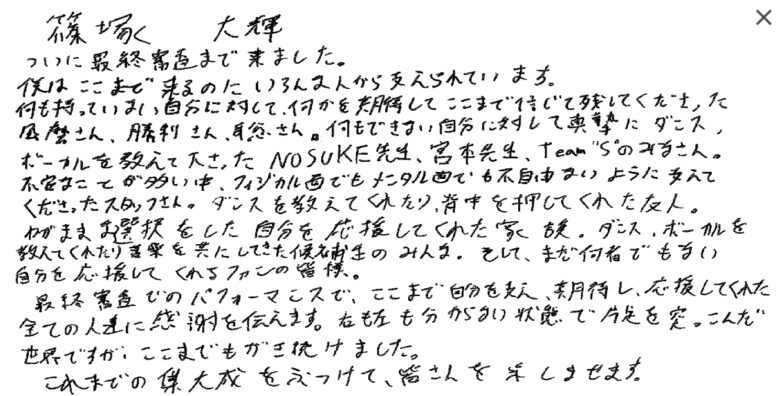 篠塚 大輝
ついに最終審査まで来ました。
僕はここまで来るのにいろんな人から支えられています。
何も持っていない自分に対して、何かを期待してここまで信じて残してくださった
風磨さん、勝利さん、聡さん。何もできない自分に対して真摯にダンス,
ボーカルを教えて下さったNOSUKE先生、宮本先生、Team"S"のみなさん。
不安なことが多い中、フィジカル面でもメンタル面でも不自由ないように支えて
くださったスタッフさん。ダンスを教えてくれたり、背中を押してくれた友人。
わがままな選択をした自分を応援してくれた家族。ダンス、ボーカルを
教えてくれたり苦楽を共にしてきた候補生のみんな。そして、まだ何者でもない
自分を応援してくれるファンの皆様。
最終審査でのパフォーマンスで、ここまで自分を支え、期待し、応援してくれた
全ての人達に感謝を伝えます。右も左も分からない状態で片足を突っこんだ
世界ですが、ここまでもがき続けました。
これまでの集大成をぶつけて、皆さんを楽しませます。